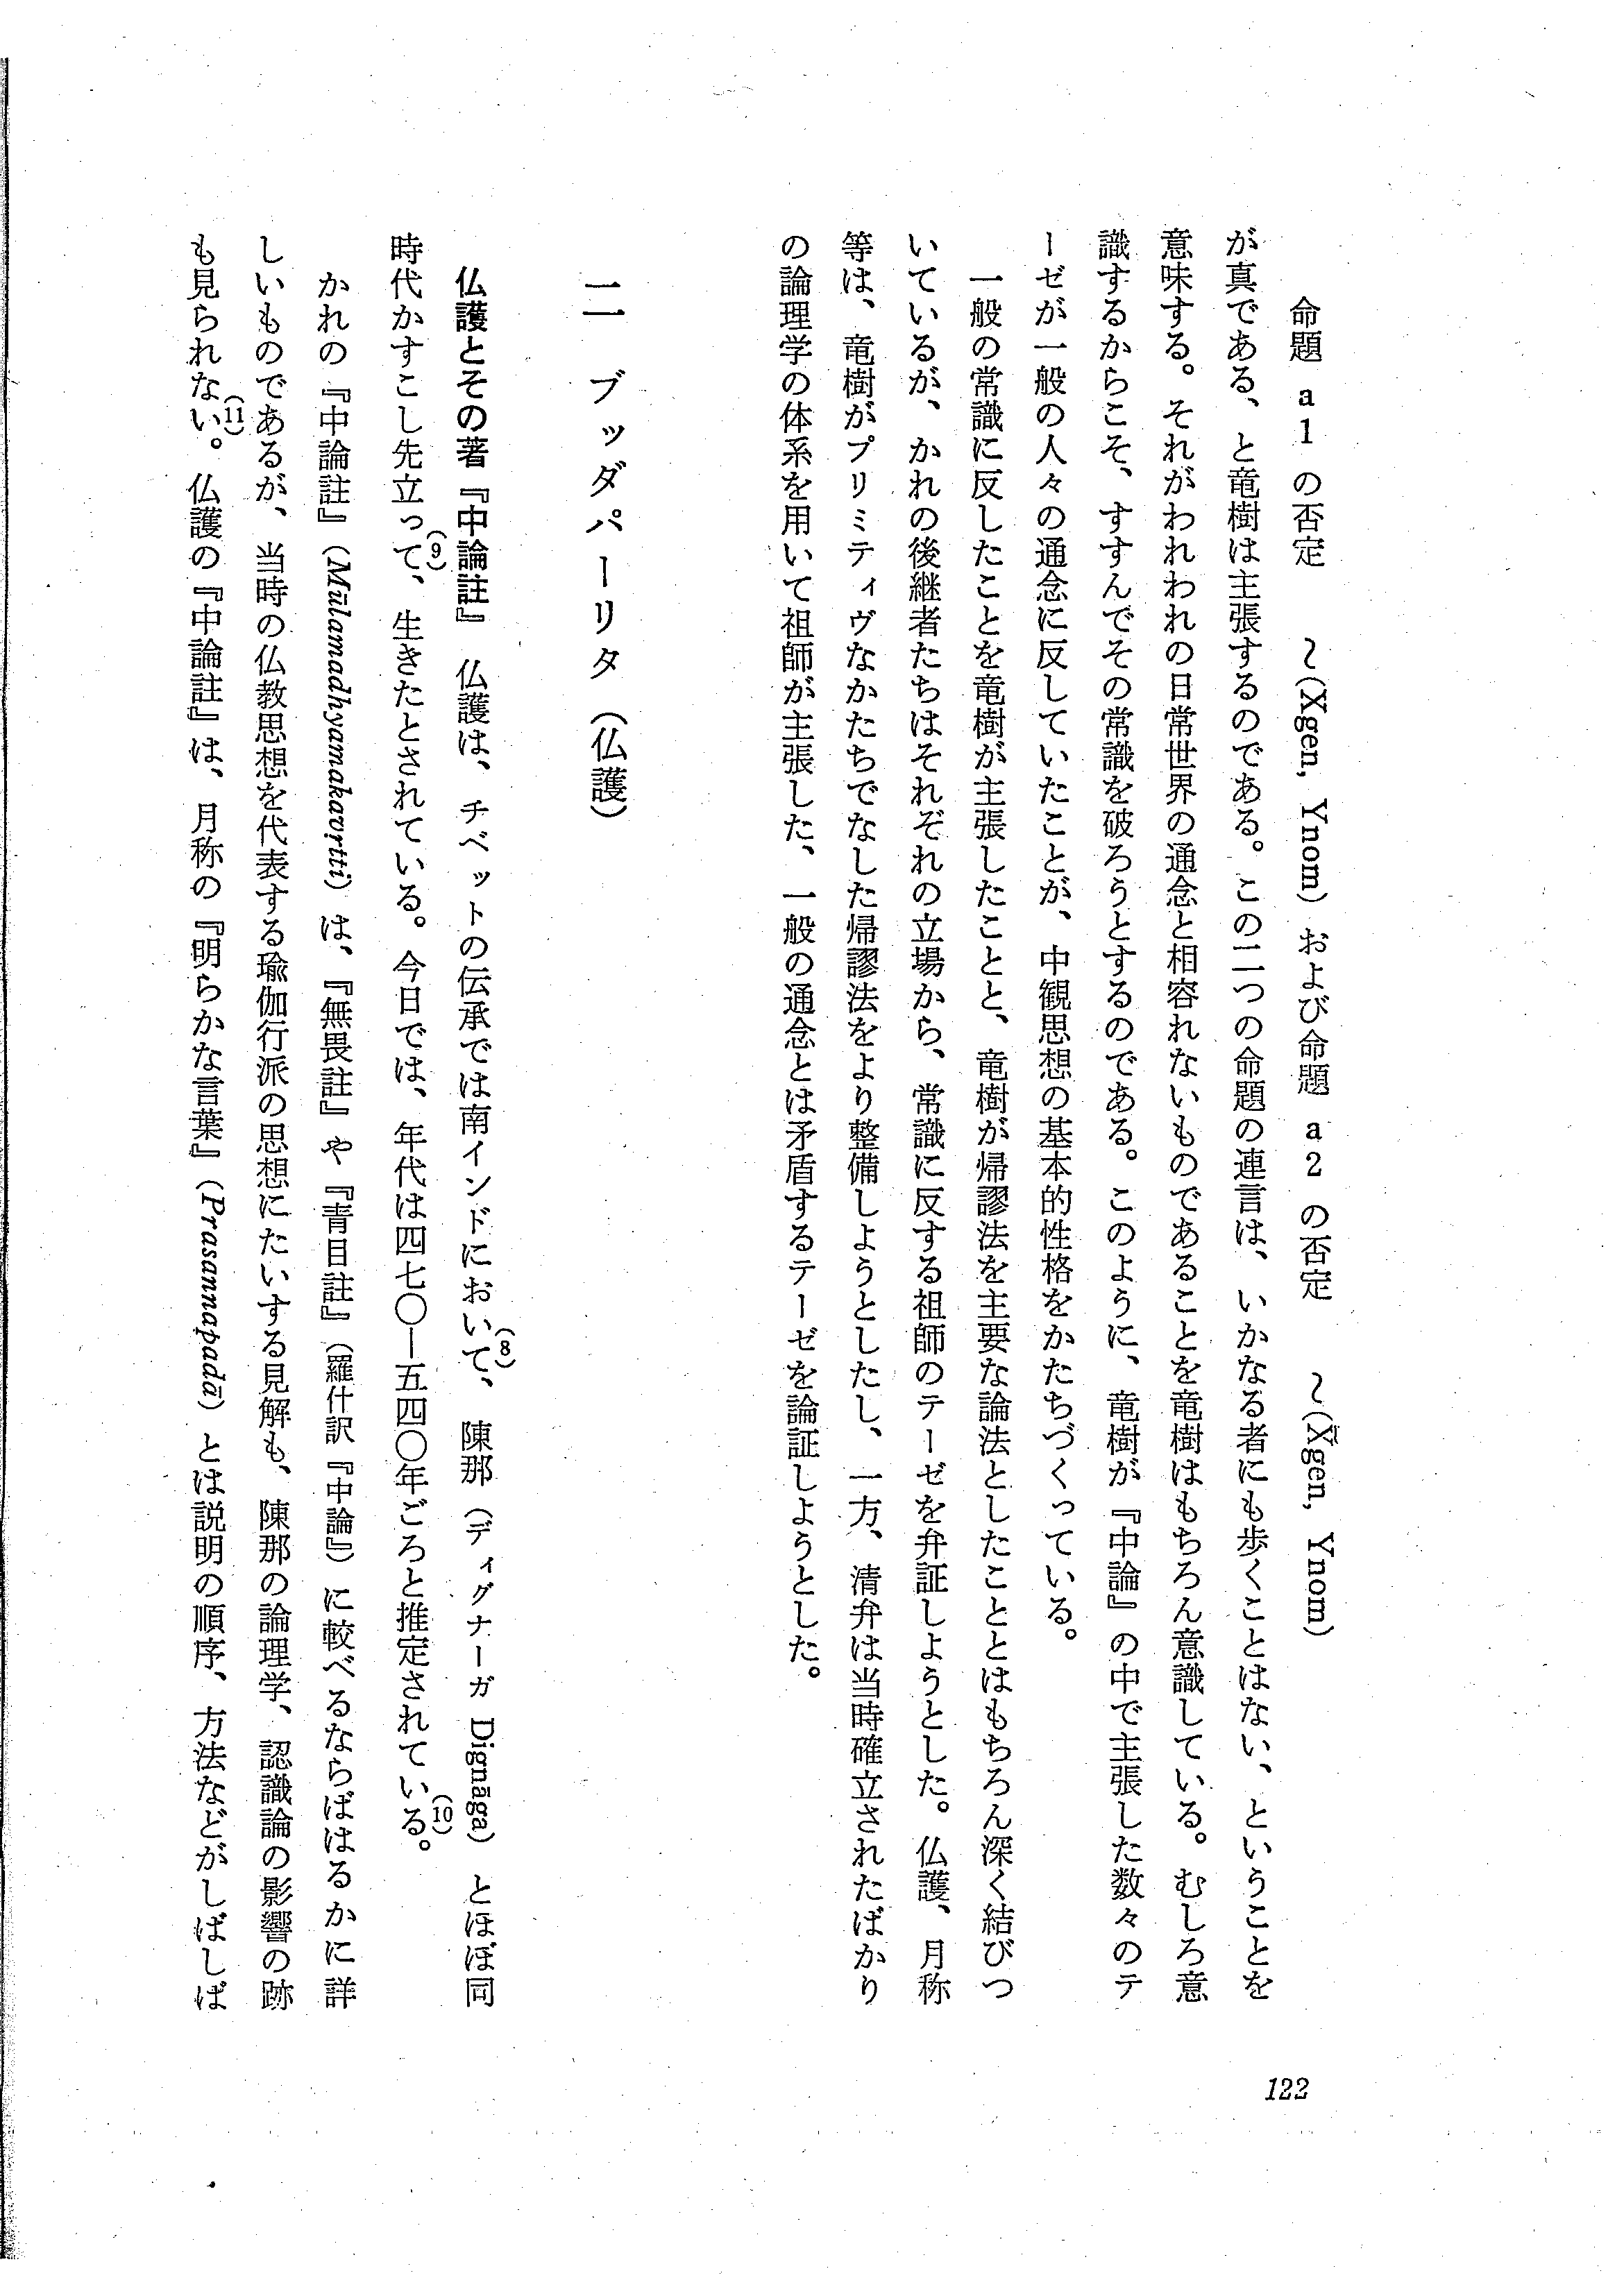 命題 a1 の否定　～(Xgen, Ynom) および命題 a2 の否定　～(X̄gen, Ynom)
が真である、と竜樹は主張するのである。この二つの命題の連言は、いかなる者にも歩くことはない、ということを
意味する。それがわれわれの日常世界の通念と相容れないものであることを竜樹はもちろん意識している。むしろ意
識するからこそ、すすんでその常識を破ろうとするのである。このように、竜樹が『中論』の中で主張した数々のテ
ーゼが一般の人々の通念に反していたことが、中観思想の基本的性格をかたちづくっている。
一般の常識に反したことを竜樹が主張したことと、竜樹が帰謬法を主要な論法としたこととはもちろん深く結びつ
いているが、かれの後継者たちはそれぞれの立場から、常識に反する祖師のテーゼを弁証しようとした。仏護、月称
等は、竜樹がプリミティヴなかたちでなした帰謬法をより整備しようとしたし、一方、清弁は当時確立されたばかり
の論理学の体系を用いて祖師が主張した、一般の通念とは矛盾するテーゼを論証しようとした。
二　ブッダパーリタ（仏護）
仏護とその著『中論註』　仏護は、チベットの伝承では南インドにおいて(8)、陳那（ディグナーガ Dignāga）とほぼ同
時代かすこし先立って(9)、生きたとされている。今日では、年代は四七〇―五四〇年ごろと推定されている(10)。
かれの『中論註』（Mūlamadhyamakavṛtti）は、『無畏註』や『青目註』（羅什訳『中論』）に較べるならばはるかに詳
しいものであるが、当時の仏教思想を代表する瑜伽行派の思想にたいする見解も、陳那の論理学、認識論の影響の跡
も見られない(11)。仏護の『中論註』は、月称の『明らかな言葉』（Prasannapadā）とは説明の順序、方法などがしばしば
122